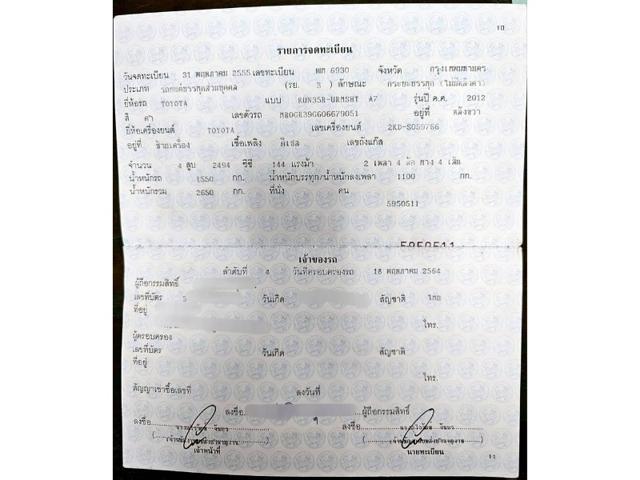 รายการจดทะเบียน
วันจดทะเบียน 31 พฤษภาคม 2555 เลขทะเบียน ฒฒ 6930 จังหวัด กรุงเทพมหานคร
ประเภท รถยนต์บรรทุกส่วนบุคคล (รย. 3 ) ลักษณะ กระบะบรรทุก
ยี่ห้อรถ TOYOTA แบบ KUN35R-URMSHT A7 รุ่นปี ค.ศ. 2012
สี ดำ เลขตัวรถ MR0GR39G606679051 อยู่ที่
ยี่ห้อเครื่องยนต์ TOYOTA เลขเครื่องยนต์ 2KD-S059766
อยู่ที่ ซ้ายเครื่อง เชื้อเพลิง ดีเซล เลขถังแก๊ส
จำนวน 4 สูบ 2494 ซีซี 144 แรงม้า 2 เพลา 4 ล้อ ยาง 4 เส้น
น้ำหนักรถ 1550 กก. น้ำหนักบรรทุก/น้ำหนักลงเพลา 1100 กก.
น้ำหนักรวม 2650 กก. ที่นั่ง คน
5950511
5950511
เจ้าของรถ
ลำดับที่ 4 วันที่ครอบครองรถ 18 พฤษภาคม 2564
ผู้ถือกรรมสิทธิ์
เลขที่บัตร 3 วันเกิด สัญชาติ ไทย
ที่อยู่
โทร.
ผู้ครอบครอง
เลขที่บัตร วันเกิด สัญชาติ
ที่อยู่
โทร.
สัญญาเช่าซื้อเลขที่ ลงวันที่
ลงชื่อ ผู้ถือกรรมสิทธิ์
ลงชื่อ ลงชื่อ
เจ้าหน้าที่ นายทะเบียน